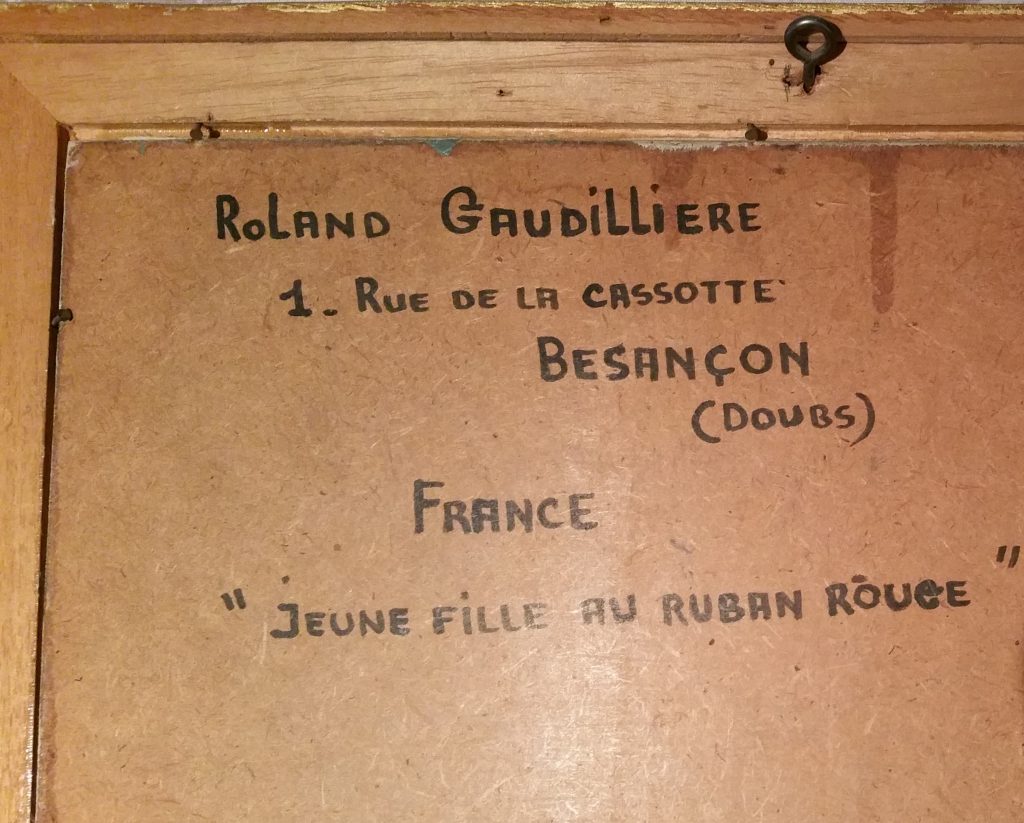 RoLAND GAUDiLLiERE
1. RUE DE LA CASSOTTE
BESANÇON
(DOUBS)
FRANCE
" JEUNE FiLLE AU RUBAN ROUGE "